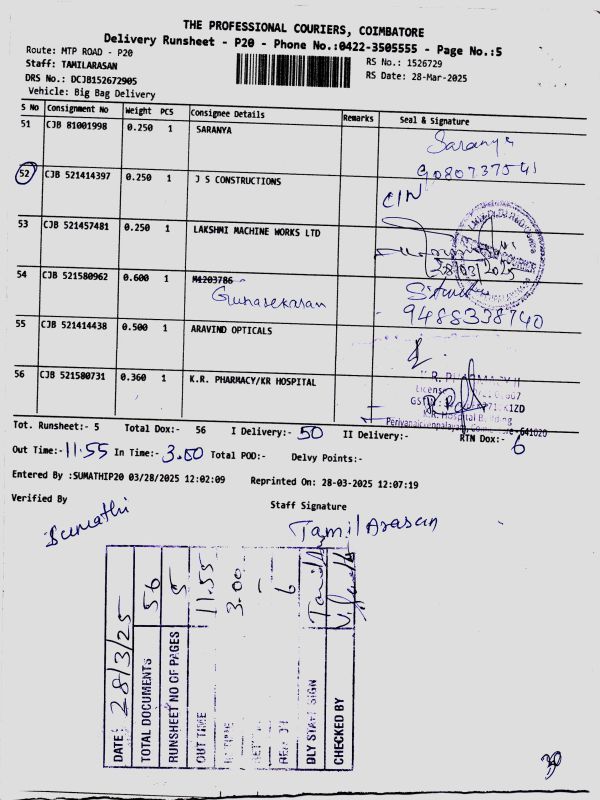 THE PROFESSIONAL COURIERS, COIMBATORE
Delivery Runsheet - P20 - Phone No.:0422-3505555 - Page No.:5
Route: MTP ROAD - P20
RS No.: 1526729
Staff: TAMILARASAN
RS Date: 28-Mar-2025
DRS No.: DCJB152672905
Vehicle: Big Bag Delivery
S No Consignment No Weight PCS Consignee Details Remarks Seal & Signature
51 CJB 81001998 0.250 1 SARANYA Saranya
9080737541
52 CJB 521414397 0.250 1 J S CONSTRUCTIONS CIN
53 CJB 521457481 0.250 1 LAKSHMI MACHINE WORKS LTD
28/03/2025
54 CJB 521580962 0.600 1 M1203786
Gunasekaran
9488338740
55 CJB 521414438 0.500 1 ARAVIND OPTICALS
56 CJB 521580731 0.360 1 K.R. PHARMACY/KR HOSPITAL
K.R. Hospital Building
641020
Tot. Runsheet:- 5 Total Dox:- 56 I Delivery:- 50 II Delivery:- RTN Dox:- 6
Out Time:- 11.55 In Time:- 3.00 Total POD:- Delvy Points:-
Entered By :SUMATHIP20 03/28/2025 12:02:09 Reprinted On: 28-03-2025 12:07:19
Verified By Staff Signature
Sumathi Tamil Arasan
DATE: 28/3/25
TOTAL DOCUMENTS 56
RUNSHEET NO OF PAGES 5
OUT TIME 11.55
3.00
6
DLY STAFF SIGN
CHECKED BY